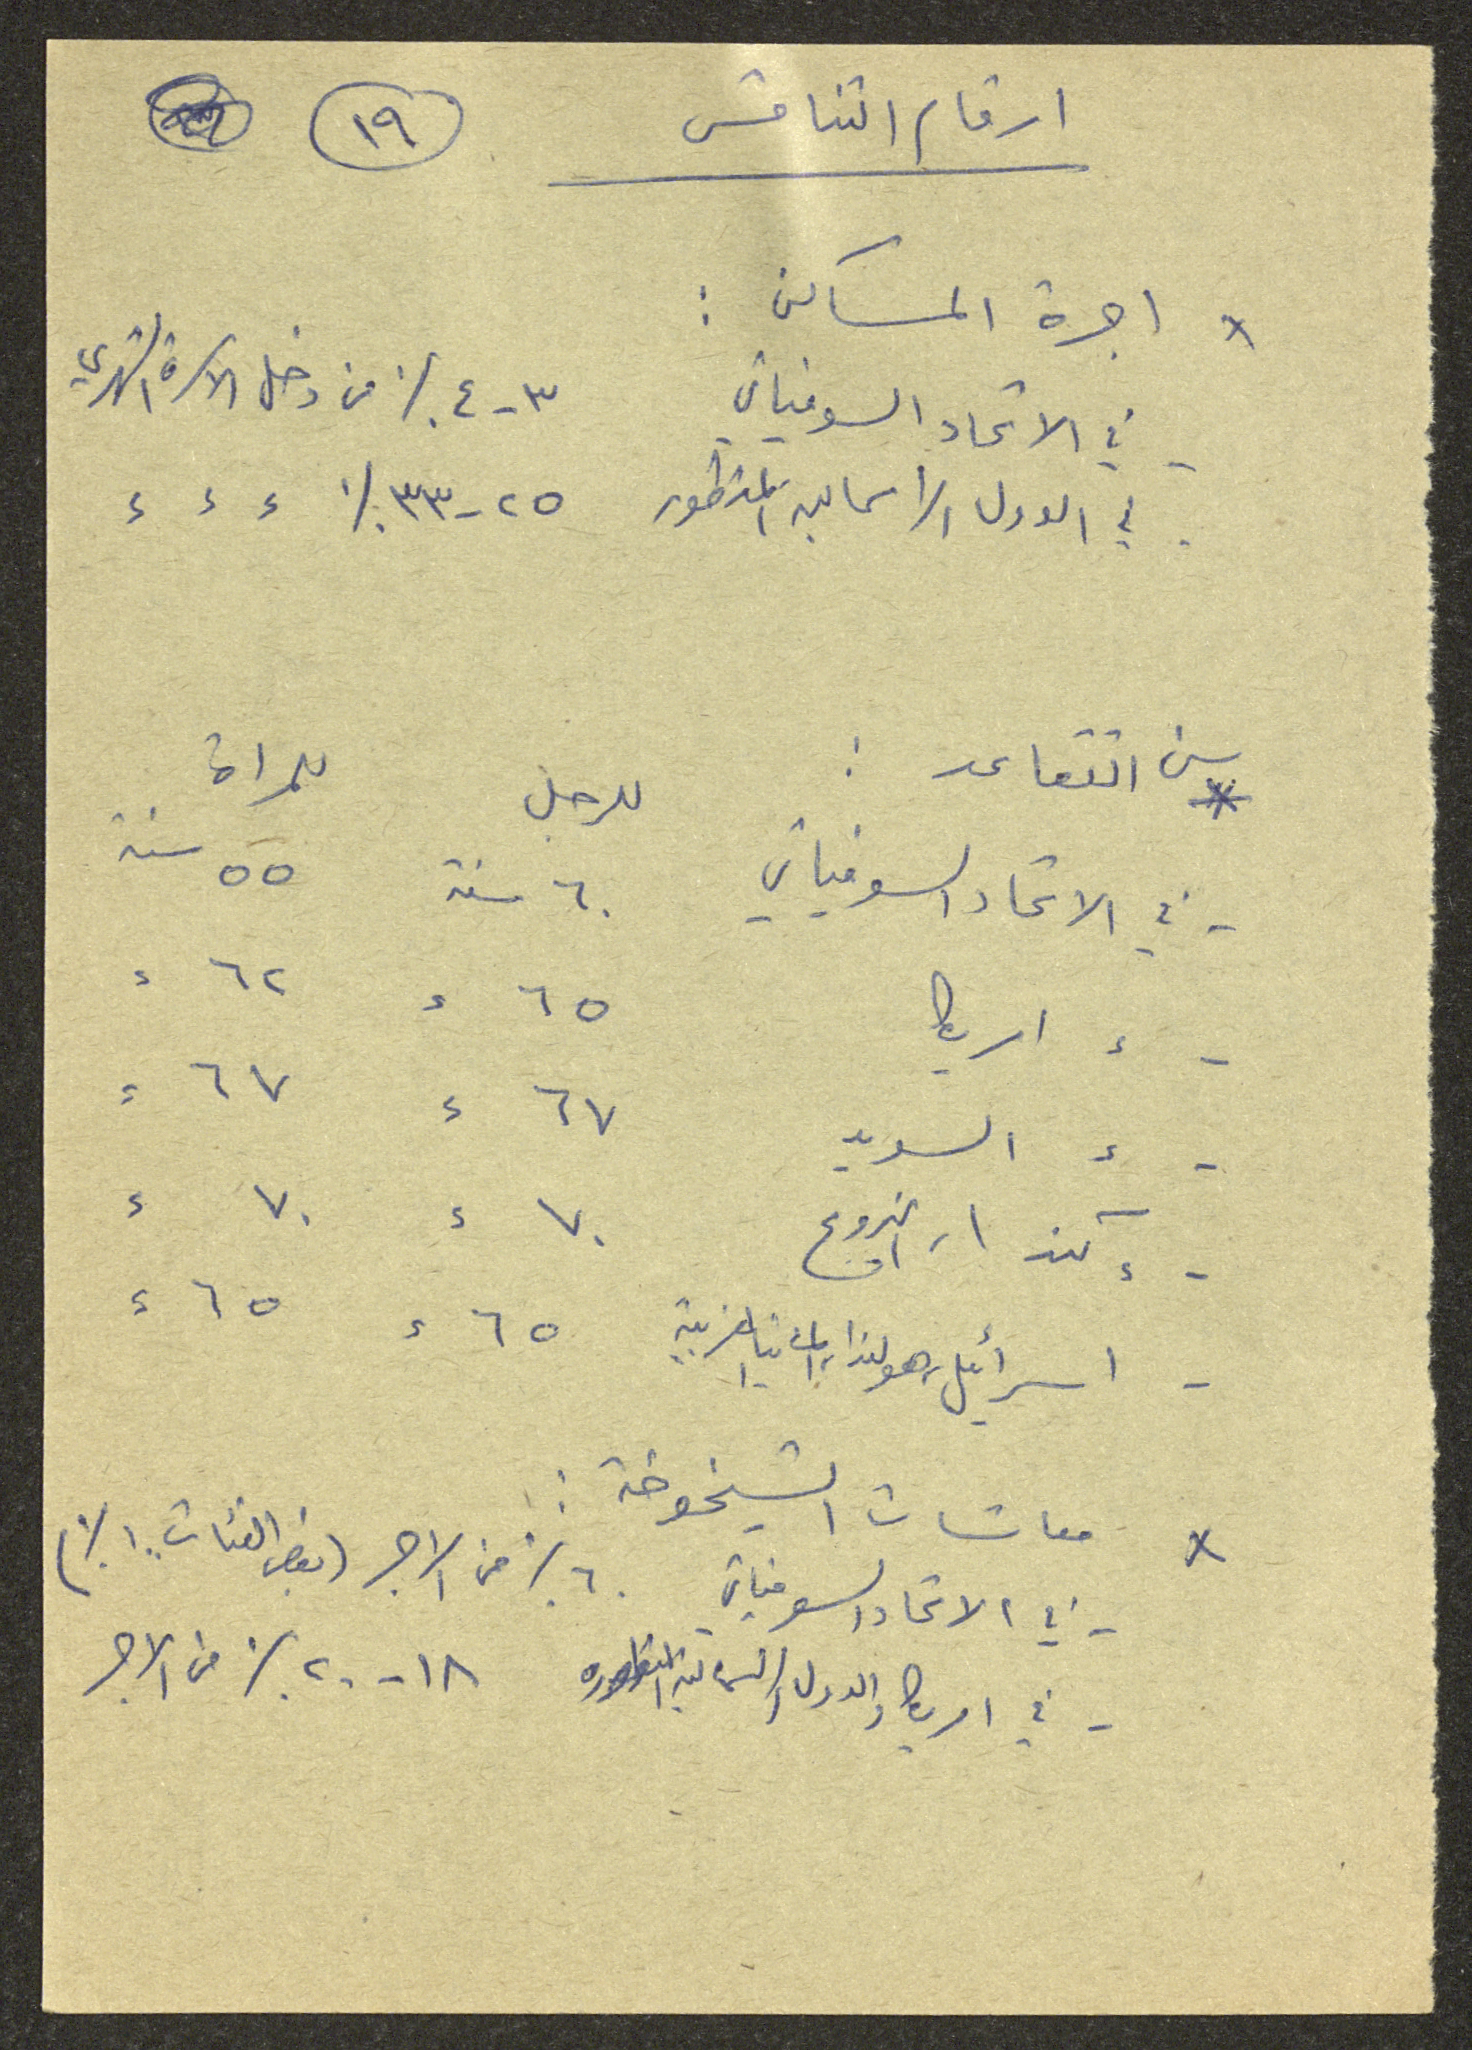 ارقام التناقس ١٩
* اجرة المساكن :
- في الاتحاد السوفياتي ٣-٤٪ من دخل الاسرة الشهري
- في الدول الراسمالية المتطور ٢٥-٣٣٪ ء ء ء
* سن التقاعد : للرجل للمراة
- في الاتحاد السوفياتي ٦٠ سنة ٥٥ سنة
- ء امريكا ٦٥ ء ٦٢ ء
- ء السويد ٦٧ ء ٦٧ ء
- ء كندا، النروج ٧٠ ء ٧٠ ء
- اسرائيل، هولندا، المانيا الغربية ٦٥ ء ٦٥ ء
* معاشات الشيخوخة :
- في الاتحاد السوفياتي ٦٠٪ من الاجر (بعض الفئات ١٠٠٪)
- في امريكا والدول الرسمالية المتطوره ١٨-٢٠٪ من الاجر